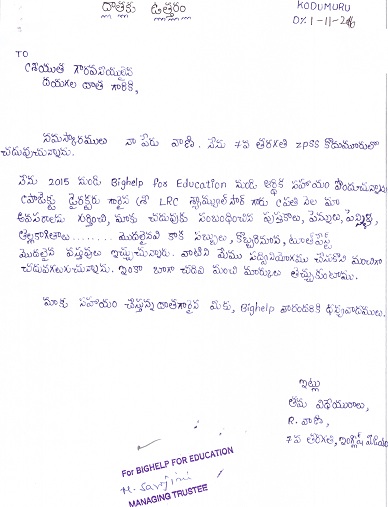 దాతకు ఉత్తరం
KODUMURU
Dt 1-11-2016
TO
శ్రీయుత గౌరవనీయులైన
దయగల దాత గారికి,
నమస్కారములు నా పేరు వాణి. నేను 7వ తరగతి ZPSS కొడుమూరులో
చదువుచున్నాను.
నేను 2015 నుండి Bighelp for Education నుండి ఆర్థిక సహాయం పొందుచున్నాను
ప్రాజెక్టు డైరెక్టరు గారైన LRC సార్ గారు ప్రతి నెల మా
అవసరాలను గుర్తించి, మాకు చదువుకు సంబంధించిన పుస్తకాలు, పెన్నులు, పెన్సిళ్లు,
తెల్లకాగితాలు........ మొదలైనవి కాక సబ్బులు, కొబ్బరినూనె, టూత్‌పేస్ట్
మొదలైన వస్తువులు ఇచ్చుచున్నారు. వాటిని మేము సద్వినియోగము చేసుకొని మంచిగా
చదువగలుగుచున్నాను. ఇంకా బాగా చదివి మంచి మార్కులు తెచ్చుకుంటాము.
మాకు సహాయం చేస్తున్న దాతగారైన మీకు, Bighelp వారందరికి ధన్యవాదములు.
ఇట్లు
తమ విధేయురాలు,
R. వాణి,
7వ తరగతి, ఇంగ్లీష్ మీడియం
For BIGHELP FOR EDUCATION
H. Sarojini
MANAGING TRUSTEE